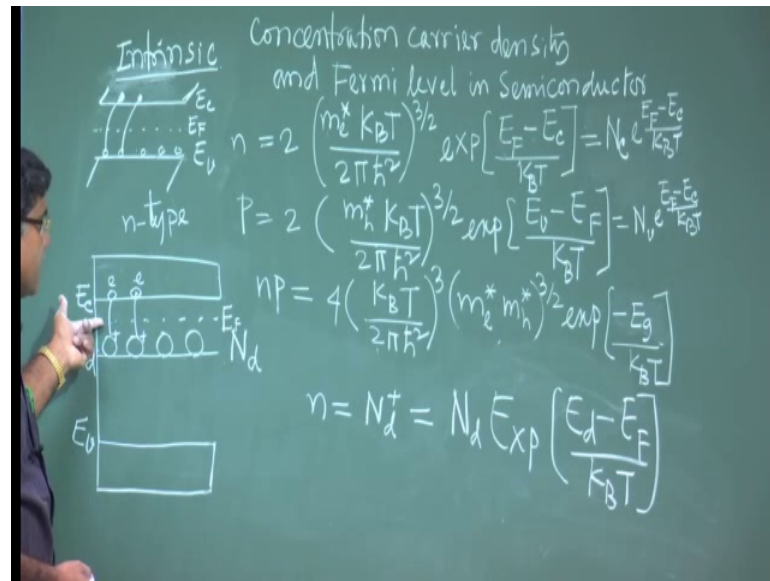 Concentration carrier density
and Fermi level in Semiconductor
Intrinsic
E_c
E_F
E_v
n = 2 (m_e^* K_B T / 2πħ²)^{3/2} exp[E_F - E_c / K_B T] = N_c e^{E_F - E_c / K_B T}
n-type
P = 2 (m_h^* K_B T / 2πħ²)^{3/2} exp[E_v - E_F / K_B T] = N_v e^{E_F - E_c / K_B T}
np = 4 (K_B T / 2πħ²)^3 (m_e^* m_h^*)^{3/2} exp[-E_g / K_B T]
e e
E_c
E_F
+ +
d N_d
E_v
n = N_d^+ = N_d Exp(E_d - E_F / K_B T)